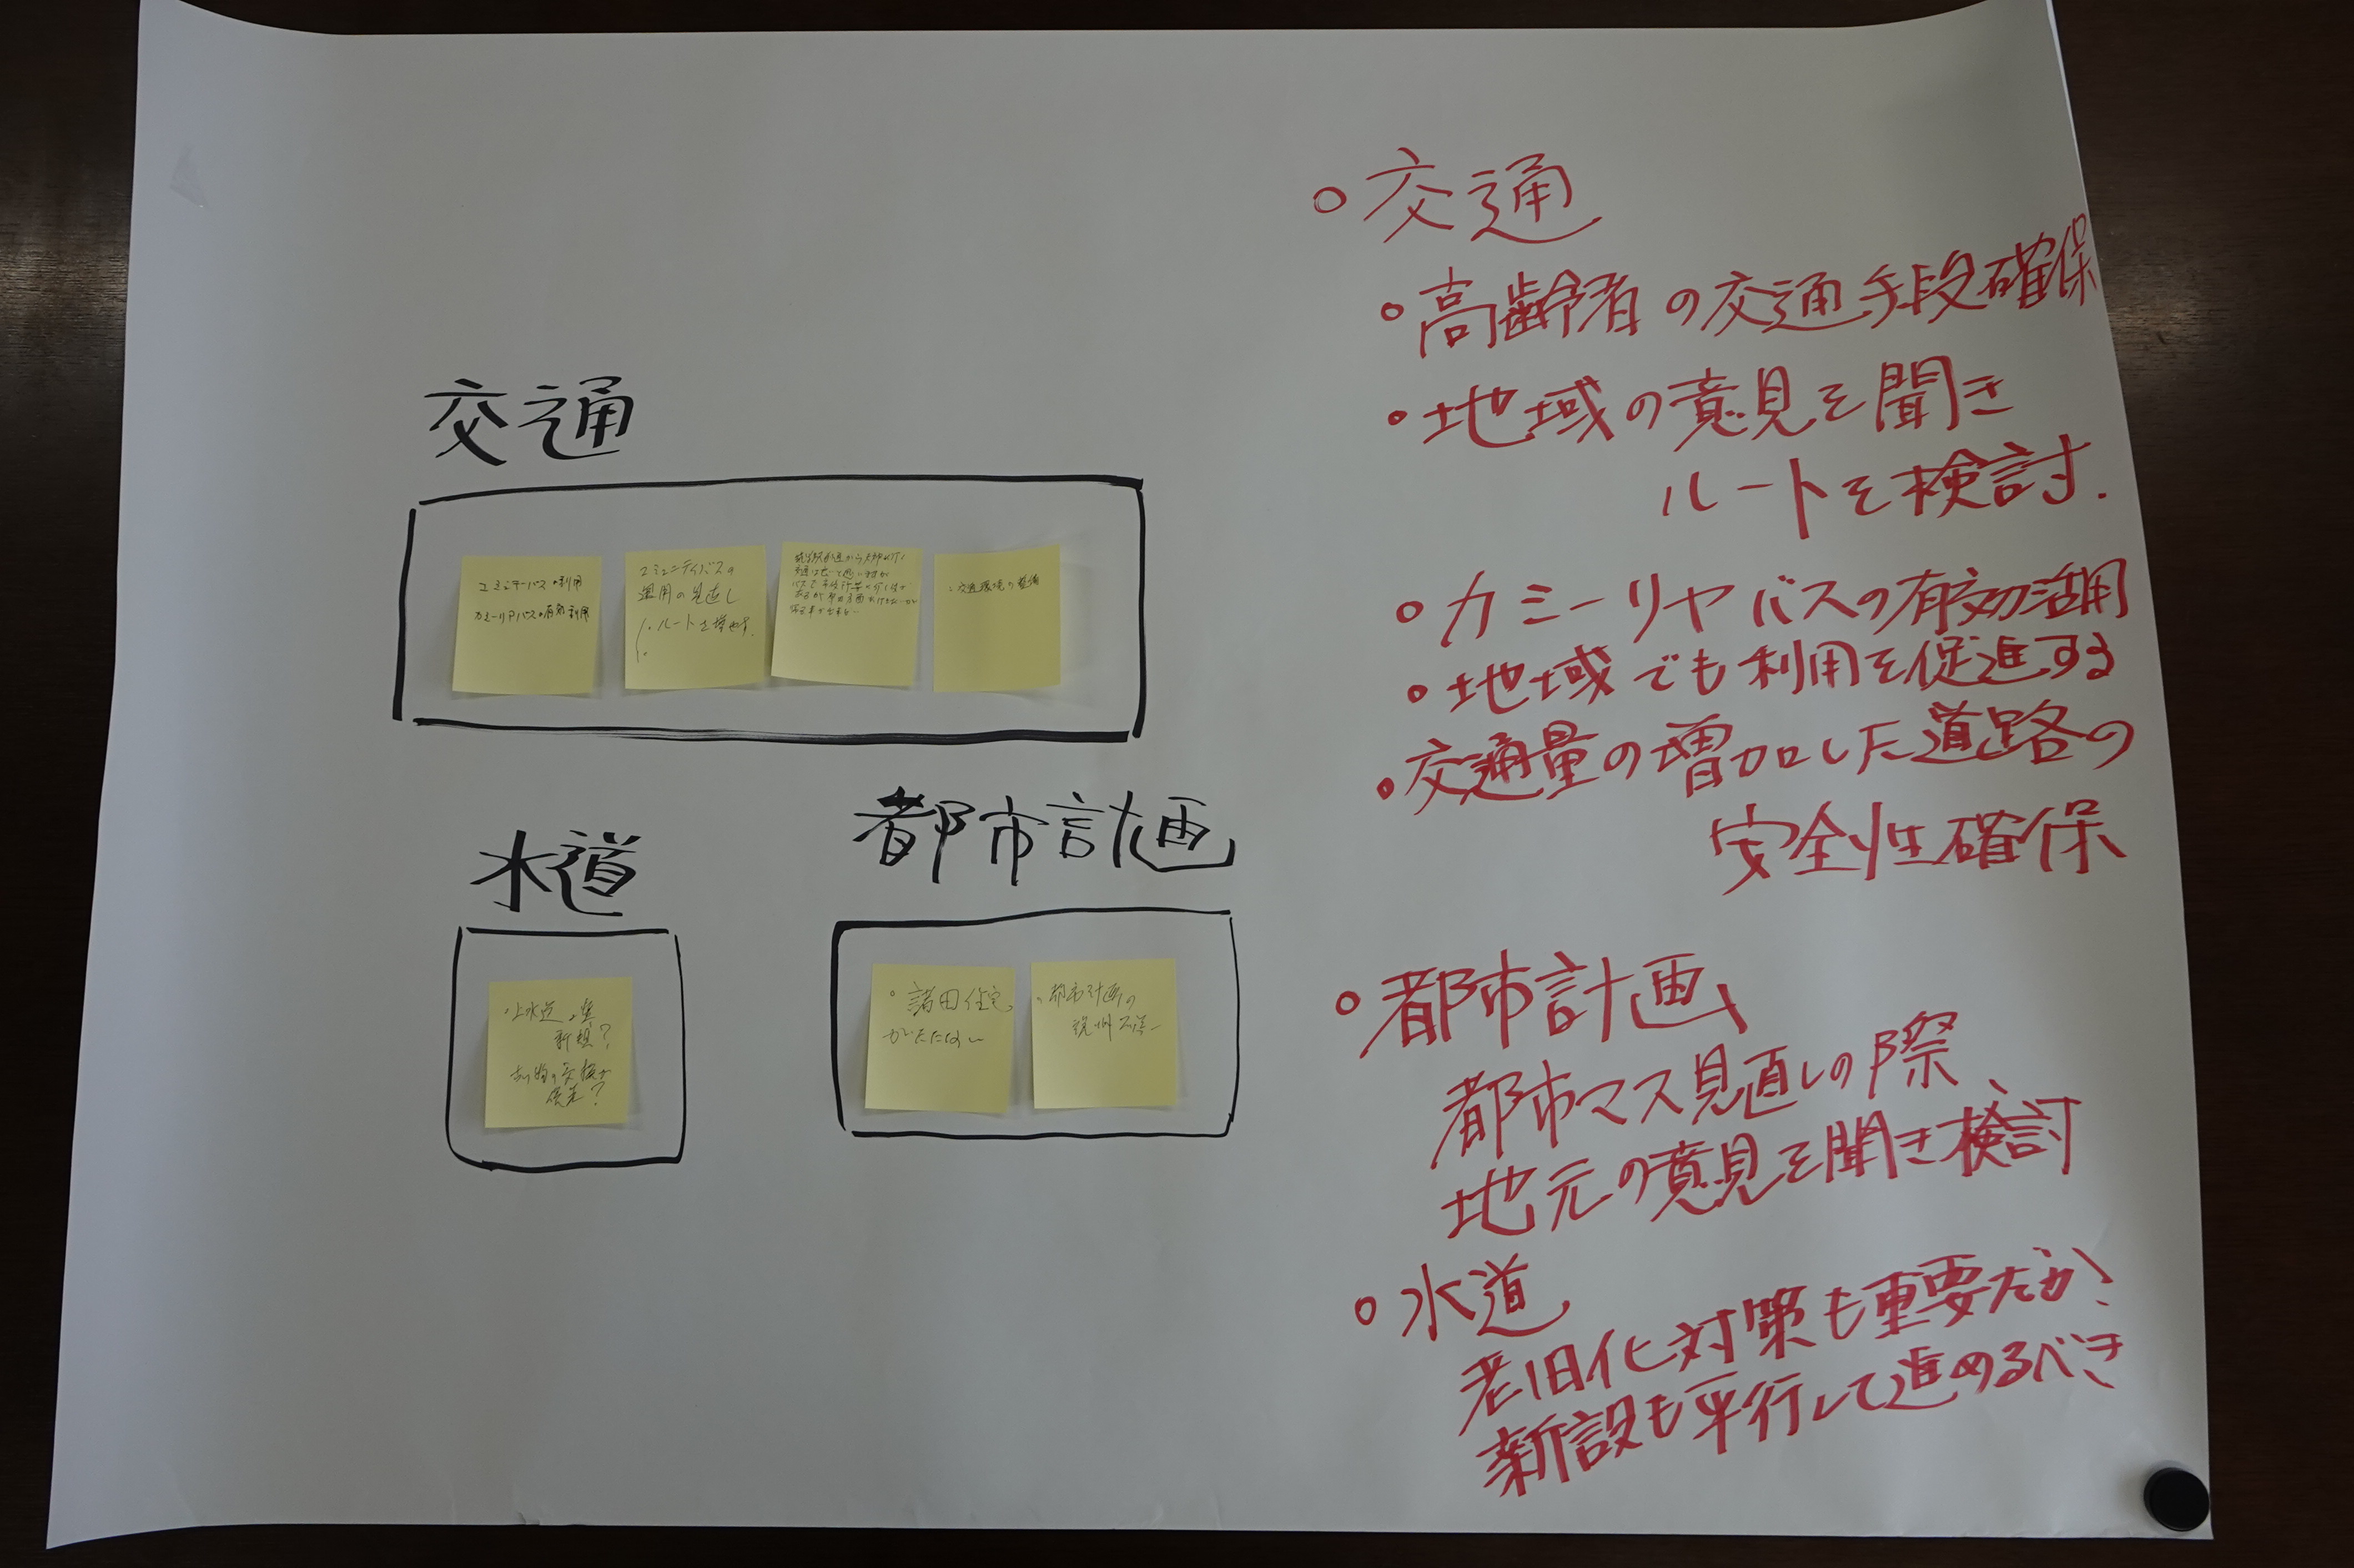 交通
コミュニテーバスの利用
カミーリアバスの有効利用
コミュニティバスの
運用の見直し
・ルートを増やす。
・交通環境の整備
水道
・上水道の
新規?
優先?
都市計画
・諸田住宅
がたたない
・都市計画の
○交通
・高齢者の交通手段確保
・地域の意見を聞き
ルートを検討.
○カミーリヤバスの有効活用
・地域でも利用を促進する
・交通量の増加した道路の
安全性確保
○都市計画
都市マス見直しの際、
地元の意見を聞き検討
○水道
老旧化対策も重要だが、
新設も平行して進めるべき